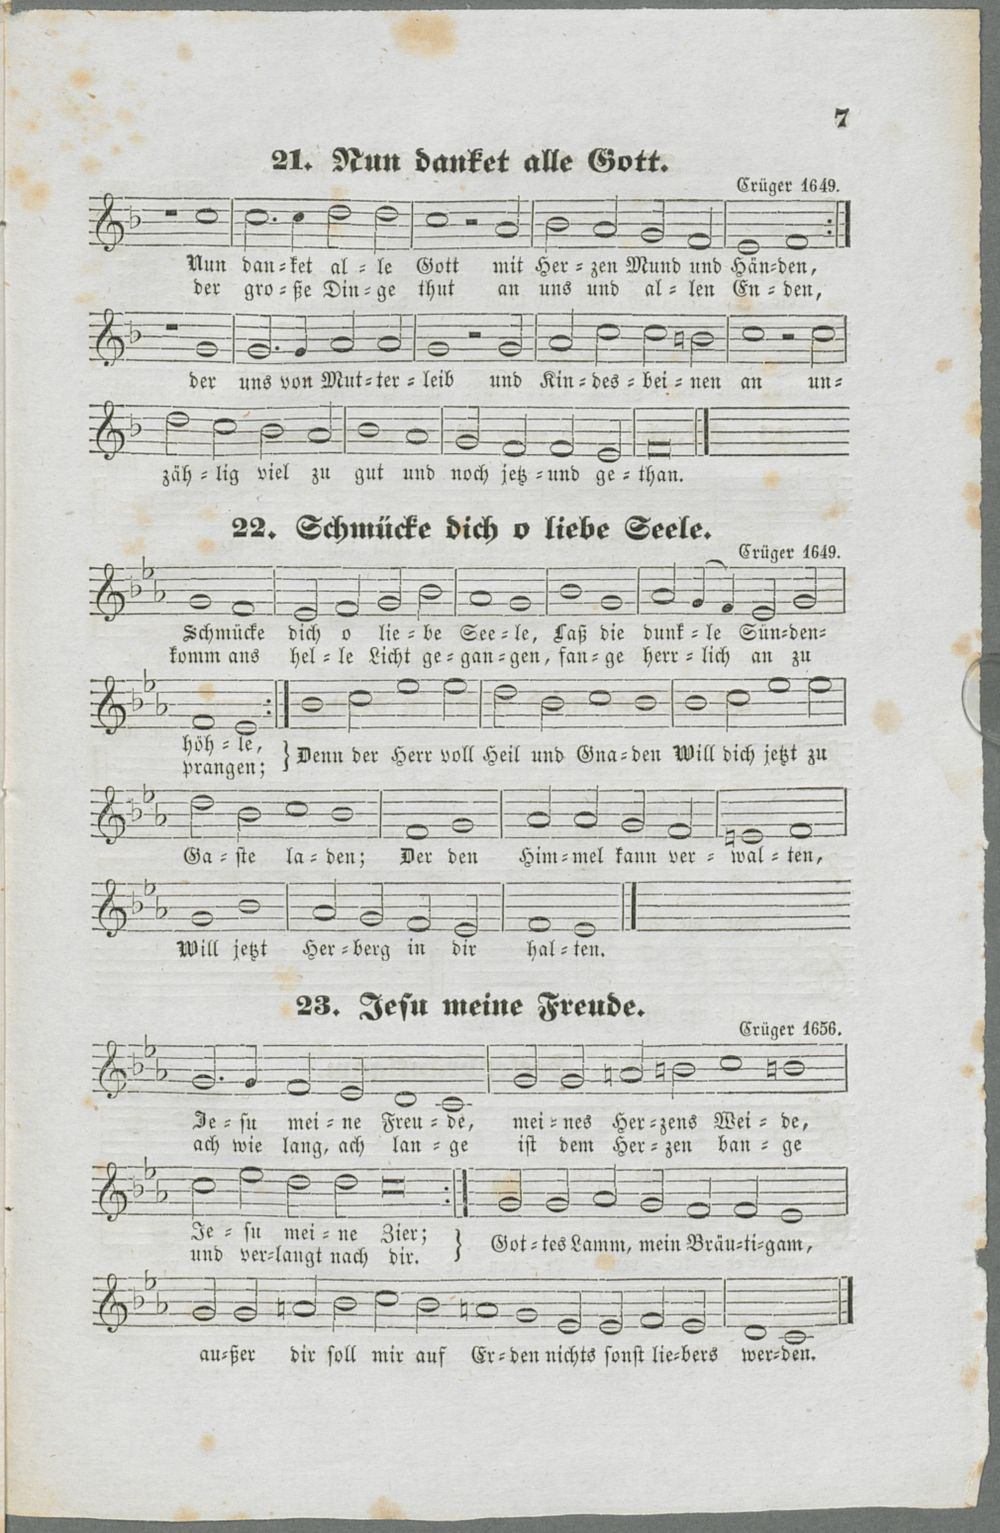 7
21. Nun danket alle Gott.
Crüger 1649.
Nun dan-ket al-le Gott mit Her-zen Mund und Hän-den,
der gro-ße Din-ge thut an uns und al-len En-den,
der uns von Mut-ter-leib und Kin-des-bei-nen an un-
zäh-lig viel zu gut und noch jetz-und ge-than.
22. Schmücke dich o liebe Seele.
Crüger 1649.
Schmücke dich o lie-be See-le, Laß die dunk-le Sün-den-
komm ans hel-le Licht ge-gan-gen, fan-ge herr-lich an zu
höh-le,
prangen;
} Denn der Herr voll Heil und Gna-den Will dich jetzt zu
Ga-ste la-den; Der den Him-mel kann ver-wal-ten,
Will jetzt Her-berg in dir hal-ten.
23. Jesu meine Freude.
Crüger 1656.
Je-su mei-ne Freu-de, mei-nes Her-zens Wei-de,
ach wie lang, ach lan-ge ist dem Her-zen ban-ge
Je-su mei-ne Zier;
und ver-langt nach dir.
} Got-tes Lamm, mein Bräu-ti-gam,
au-ßer dir soll mir auf Er-den nichts sonst lie-bers wer-den.